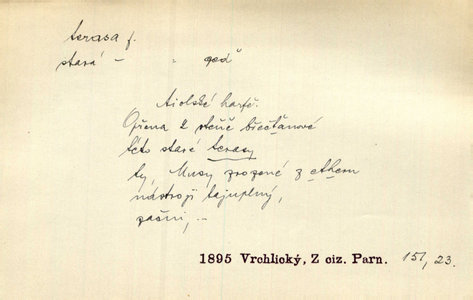 terasa f.
stará –
Aiolské harfě.
Opřena k stěně břečťanové
této staré terasy
ty, Musy zrozené z etheru
nástroji tajuplný,
začni, ...
1895 Vrchlický, Z ciz. Parn. 151, 23.